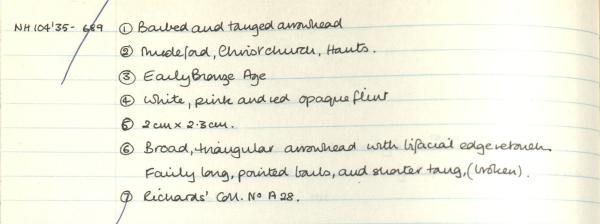 NH 104'35 - 689 ① Barbed and tanged arrowhead
② Mudeford, Christchurch, Hants.
③ Early Bronze Age
④ White, pink and red opaque flint
⑤ 2cm x 2.3cm.
⑥ Broad, triangular arrowhead with bifacial edge retouch.
Fairly long, pointed barbs, and shorter tang, (broken).
⑦ Richards' Coll. No A 28.